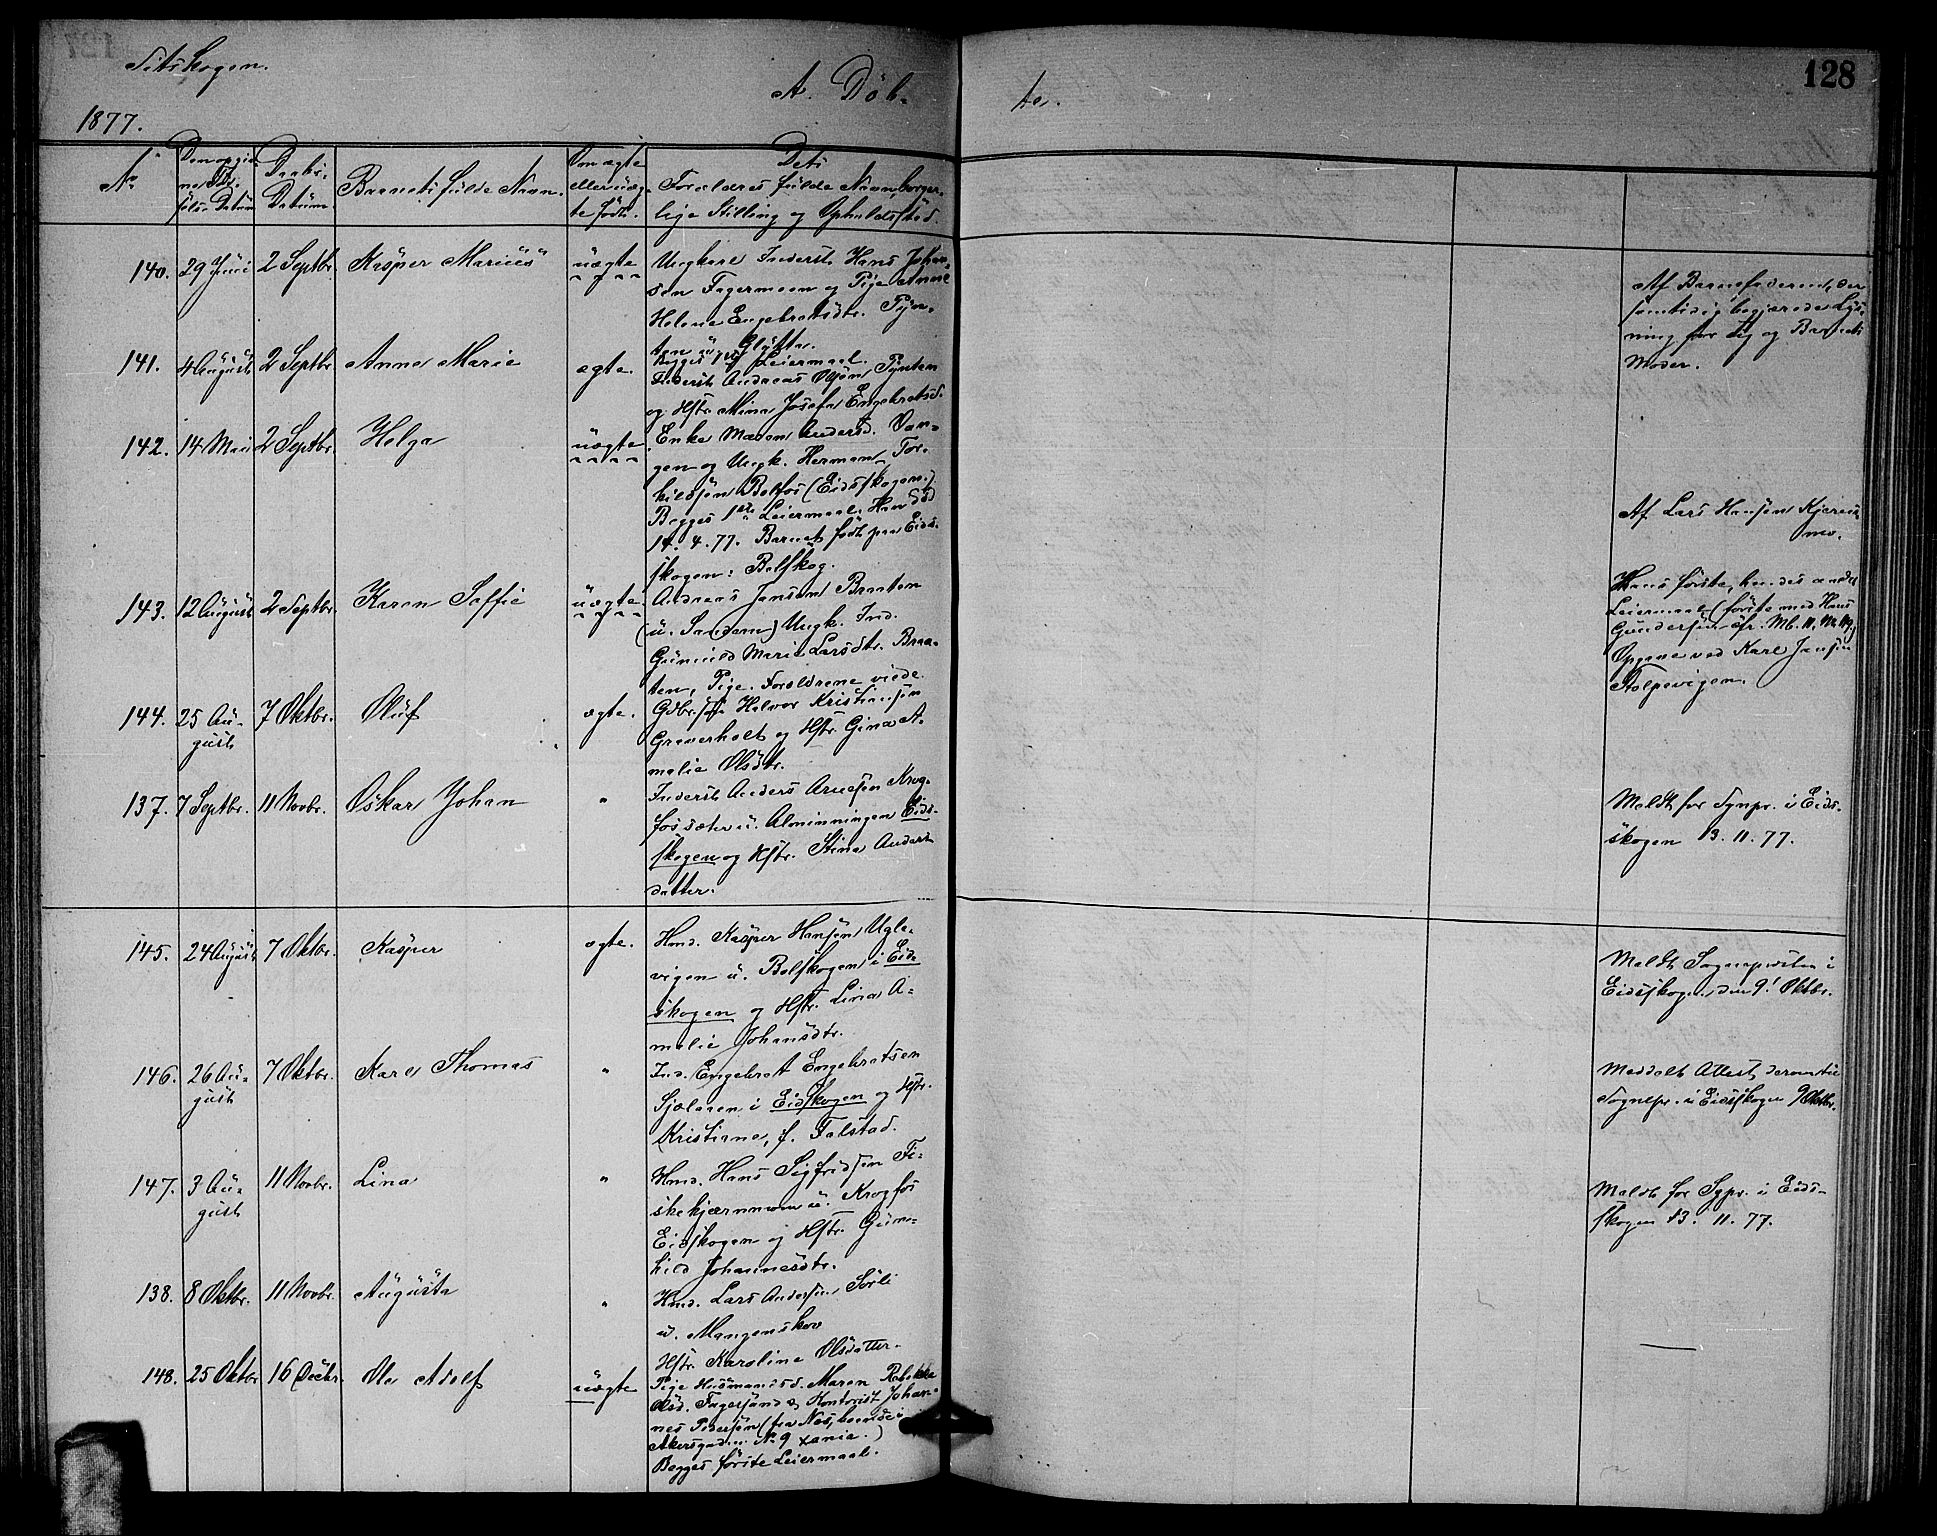 Setskogen.
A. Døb-
te.
128
1877.
No
Den opgiv-
ne Fød-
sels-Datum
Daabs-
Datum.
Barnets fulde Navn.
Om ægte
eller uæg-
te født.
Dets
Forældres fulde Navn, borger-
lige Stilling og Opholdssted
140. 29 Juni 2 Septbr. Kasper Marius uægte
Ungkarl Inderst Hans Johan-
sen Fagermoen og Pige Anne
Helene Engebretsdtr. Tyn-
ten u. Slötten.
Begges 1ste Leiermaal.
Af Barnefaderen, der
samtidig begjærede Lys-
ning for sig og Barnets
Moder.
141. 4 August 2 Septbr. Anna Marie ægte.
Inderst Andreas Olsen Tynten
og Hstr. Mina Josefa Engebretsd.
142. 14 Mai 2 Septbr. Helga uægte
Enke Maren Andersd. Van-
gen og Ungk. Herman Tor-
kildsen Bolfos (Eidsskogen.)
Begges 1ste Leiermaal. Han død
14. 4. 77. Barnet født paa Eids-
skogen: Belskog.
Af Lars Hansen Kjerns-
mo.
143. 12 August 2 Septbr. Karen Saffie uægte
Andreas Jansen Braaten
(u. Sanden) Ungk. Ind.
Gunnild Marie Larsdtr. Braa-
ten, Pige. Forældrene viede.
Hans første, hendes andet
Leiermaal (første med Hans
Gundersen cfr. Mb. 11. No 119)
Opgave ved Karl Jansen
Stolpevigen.
144. 25 Au-
gust
7 Oktbr. Oluf ægte.
Gdbr.s. Halvor Kristiansen
Graverholt og Hstr. Gina A-
malie Olsdtr.
137. 7 Septbr. 11 Novbr. Oskar Johan "
Inderst Anders Arnesen Krog-
fossæter u. Alminningen Eids-
skogen og Hstr. Stina Anders-
datter.
Meldt for Sgnpr. i Eids-
skogen 13. 11. 77.
145. 24 August 7 Oktbr. Kasper ægte.
Hmd. Kasper Hansen Ugle-
vigen u. Belskogen i Eid-
skogen og Hstr. Lina A-
malie Johansdtr.
Meldt Sognepresten i
Eidsskogen den 9' Oktbr.
146. 26 Au-
gust
7 Oktbr. Karl Thomas "
Ind. Engebret Engebretsen
Sjølaren i Eidskogen og Hstr.
Kristiane, f. Falstad.
Meddelt Attest derom til
Sognepr. i Eidsskogen 9 Oktbr.
147. 3 Au-
gust
11 Novbr. Lina "
Hmd. Hans Sigfridsen Fi-
skekjærnmoen u. Krogfos
Eidskogen og Hstr. Gun-
hild Johannesdtr.
Meldt for Sgpr. i Eids-
skogen 13. 11. 77.
138. 8 Oktbr. 11 Novbr. Augusta "
Hmd. Lars Andersen Sørli
u. Mangenskov
Hstr. Karoline Olsdatter.
148. 25 Oktbr 16 Decbr. Ole Adolf uægte
Pige Husmandsd. Maren Rebekka
Olsd. Fagersand & Kontorist Johan-
nes Pedersen (fra Nes, boende i
Akersgaden No 9 Xania.)
Begges første Leiermaal.